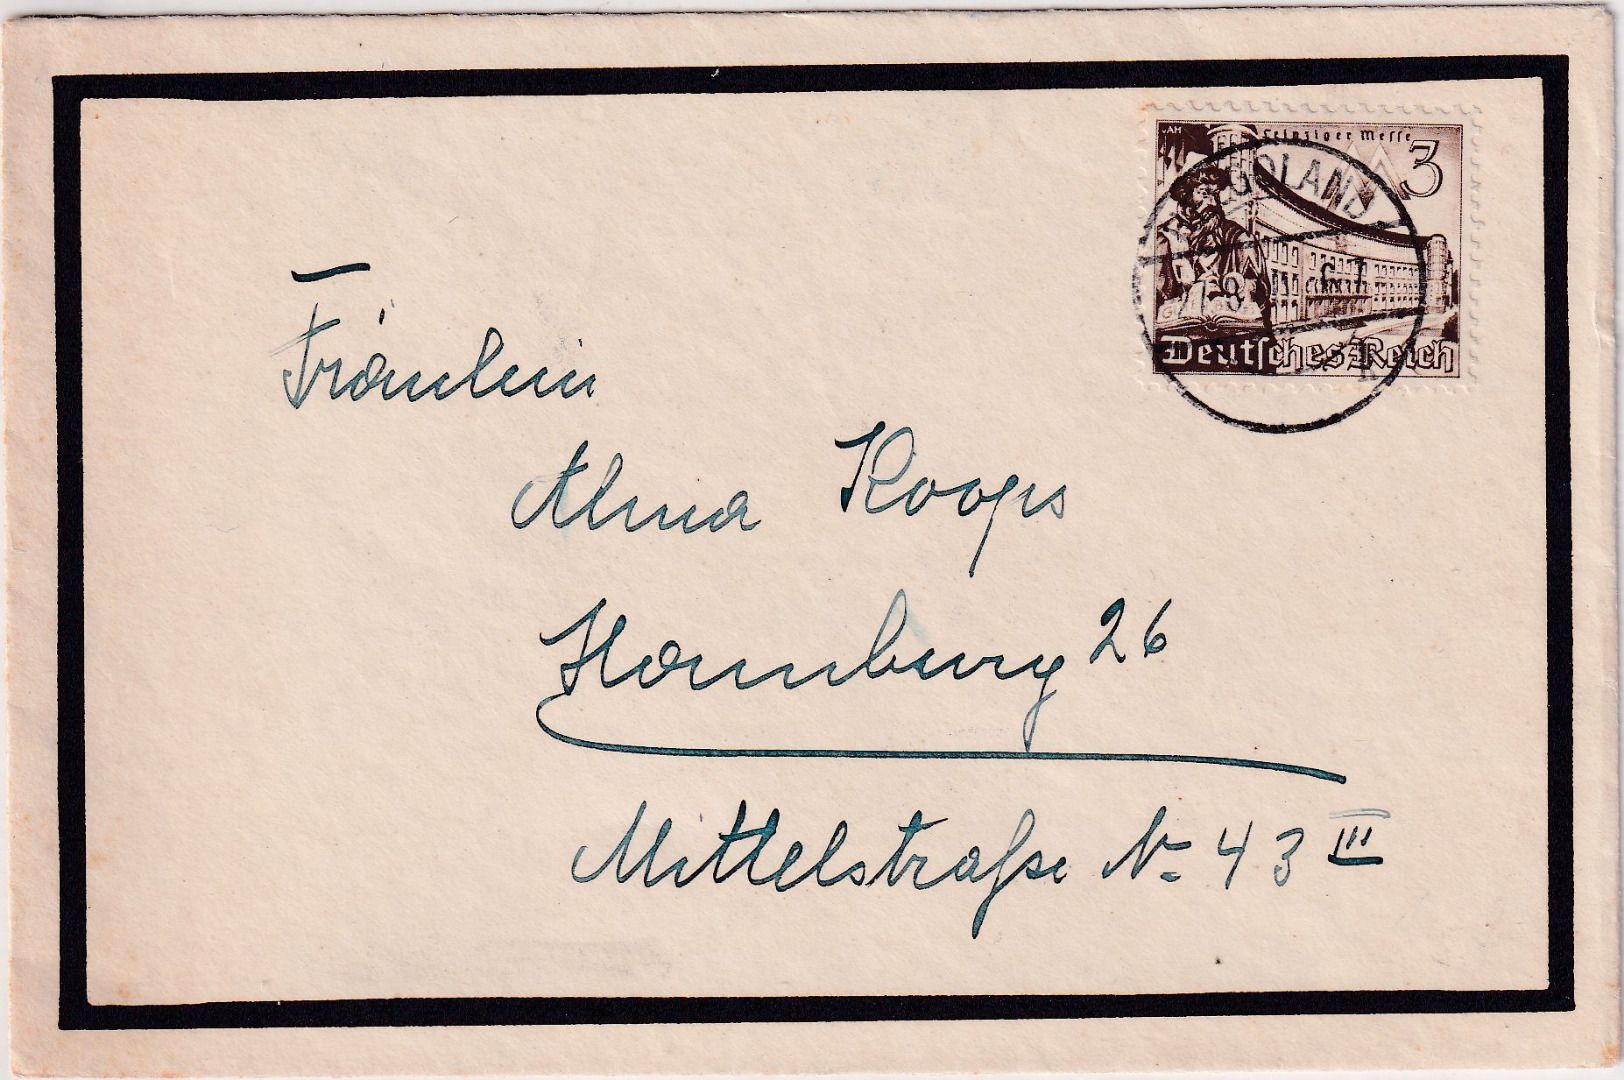 Leipziger Messe
3
HELGOLAND
Deutsches Reich
Fräulein
Alma Koops
Hamburg 26
Mittelstraße No. 43 III